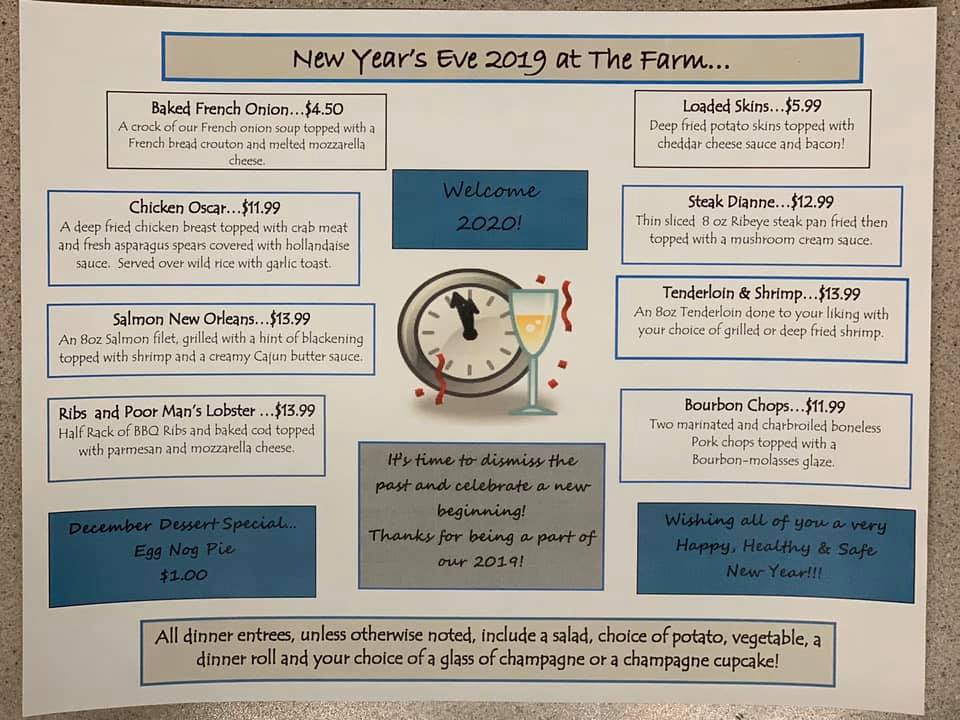 New Year's Eve 2019 at The Farm...
Baked French Onion...$4.50
A crock of our French onion soup topped with a
French bread crouton and melted mozzarella
cheese.
Loaded Skins...$5.99
Deep fried potato skins topped with
cheddar cheese sauce and bacon!
Welcome
2020!
Chicken Oscar...$11.99
A deep fried chicken breast topped with crab meat
and fresh asparagus spears covered with hollandaise
sauce. Served over wild rice with garlic toast.
Steak Dianne...$12.99
Thin sliced 8 oz Ribeye steak pan fried then
topped with a mushroom cream sauce.
Salmon New Orleans...$13.99
An 8oz Salmon filet, grilled with a hint of blackening
topped with shrimp and a creamy Cajun butter sauce.
Tenderloin & Shrimp...$13.99
An 8oz Tenderloin done to your liking with
your choice of grilled or deep fried shrimp.
Ribs and Poor Man's Lobster ...$13.99
Half Rack of BBQ Ribs and baked cod topped
with parmesan and mozzarella cheese.
Bourbon Chops...$11.99
Two marinated and charbroiled boneless
Pork chops topped with a
Bourbon-molasses glaze.
It's time to dismiss the
past and celebrate a new
beginning!
Thanks for being a part of
our 2019!
December Dessert Special...
Egg Nog Pie
$1.00
Wishing all of you a very
Happy, Healthy & Safe
New Year!!!
All dinner entrees, unless otherwise noted, include a salad, choice of potato, vegetable, a
dinner roll and your choice of a glass of champagne or a champagne cupcake!